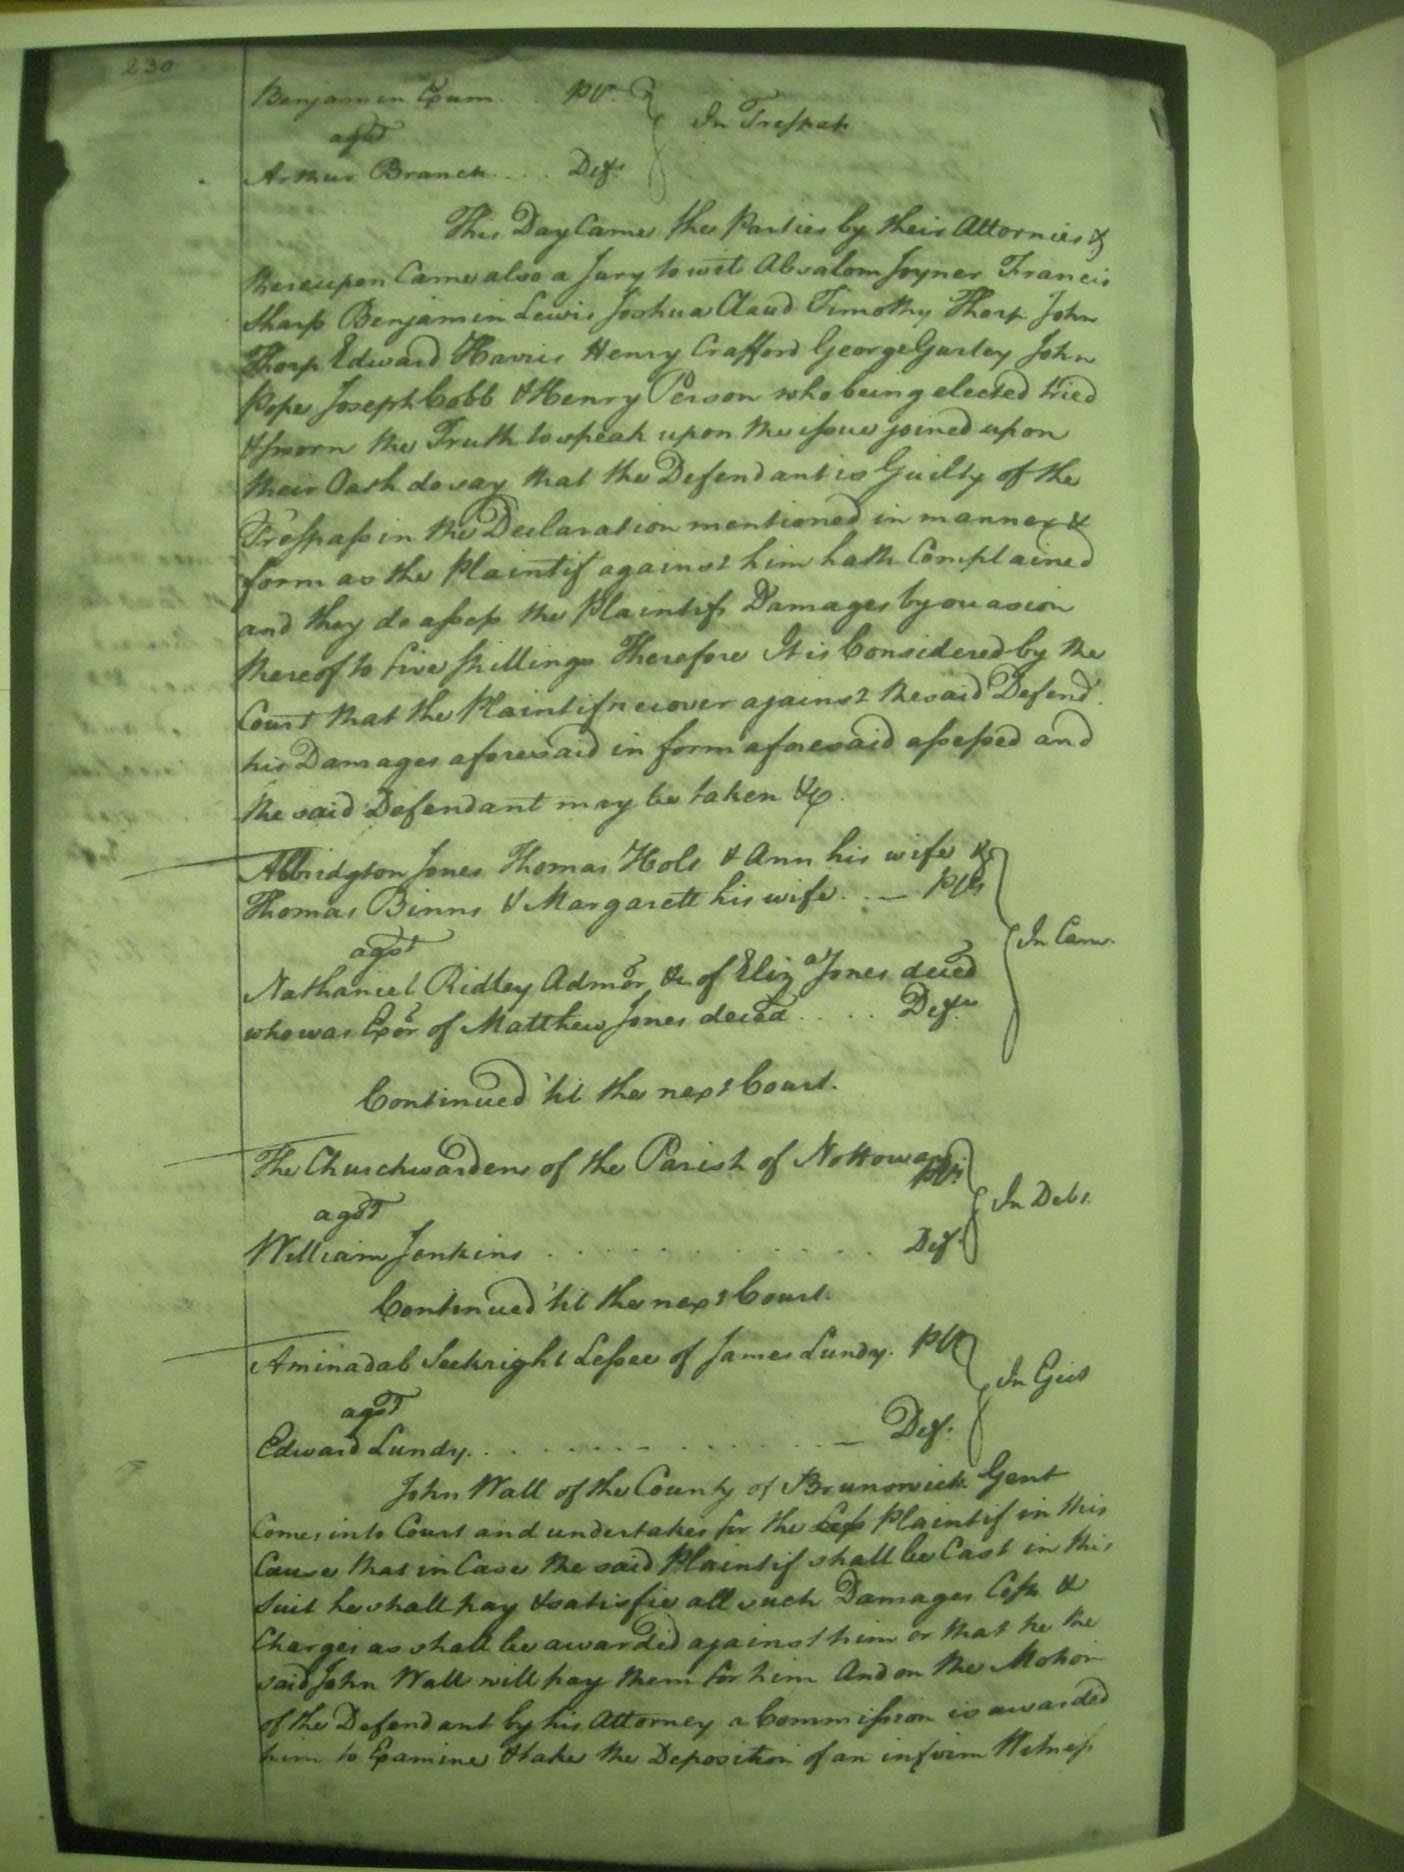 230
Benjamin Exum . . Plt.
agst
In Trespass
Arthur Branch . . . . Def.t
This Day Came the Parties by their Attornies &
thereupon Came also a Jury towit Absalom Joyner Francis
Sharp Benjamin Lewis Joshua Claud Timothy Thorp John
Thorp Edward Harris Henry Crafford George Gurley John
Pope Joseph Cobb & Henry Person who being elected tried
& sworn the Truth to speak upon the issue joined upon
their Oath do say that the Defendant is Guilty of the
Trespass in the Declaration mentioned in manner &
form as the Plaintif against him hath Complained
and they do assess the Plaintifs Damages by occasion
thereof to five shillings Therefore It is Considered by the
Court that the Plaintif recover against the said Defend.t
his Damages aforesaid in form aforesaid assessed and
the said Defendant may be taken &c.
Albridgton Jones Thomas Holt & Ann his wife &
Thomas Binns & Margarett his wife . . . Plts
agst
In Canc.
Nathaniel Ridley Admor &c of Eliza Jones deced
who was Exor of Matthew Jones deced . . . . Def.t
Continued 'til the next Court.
The Churchwardens of the Parish of Nottoway
Plts
agst
In Debt.
William Jenkins . . . . . . . . . . . . Def.t
Continued 'til the next Court.
Aminadab Seekright Lessee of James Lundy. Plt
agst
In Eject
Edward Lundy. . . . . . . . . . . . Def.t
John Wall of the County of Brunswick Gent
Comes into Court and undertakes for the Plaintif in this
Cause that in Case the said Plaintif shall be Cast in this
Suit he shall pay & satisfie all such Damages Costs &
Charges as shall be awarded against him or that he the
said John Wall will pay them for him And on the Motion
of the Defendant by his Attorney a Commission is awarded
him to Examine & take the Deposition of an infirm Witness